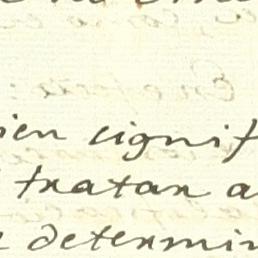 ien signif
tratar a
determin